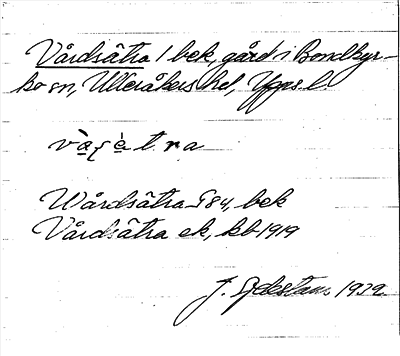 Vårdsätra / bek, gård i Bondkyr-
ko sn, Ulleråkers hd, Upps. l.
Wårdsätra G 84, bek
Vårdsätra ek, kb 1919
J. 1939.